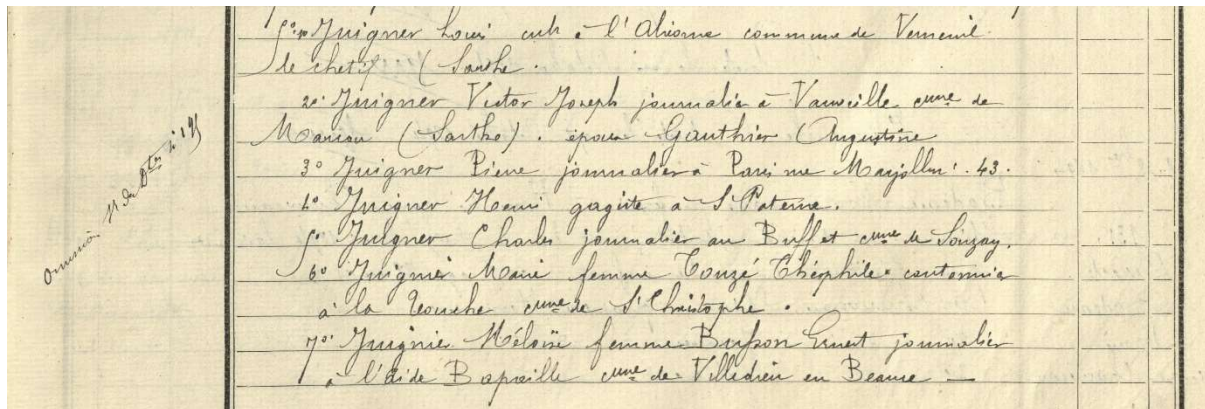 1° Juigner Louis cult à l'Ahisme commune de Verneuil
le chetif (Sarthe.
2° Juigner Victor Joseph journalier à Vauveille cune de
Marçon (Sarthe). époux Gauthier Augustine
3° Juigner Pierre journalier à Paris rue Marjollin. 43.
4° Juigner Henri gagiste à St Paterne.
5° Juigner Charles journalier au Buffet cune de Souzay.
6° Juignier Marie femme Touzé Théophile cantonnier
à la Touche cune de St Christophe.
7° Juignier Méloïe femme Busson Ernest journalier
à l'aide Bapaille cune de Villedieu en Beauce —
11 de Bter à 195